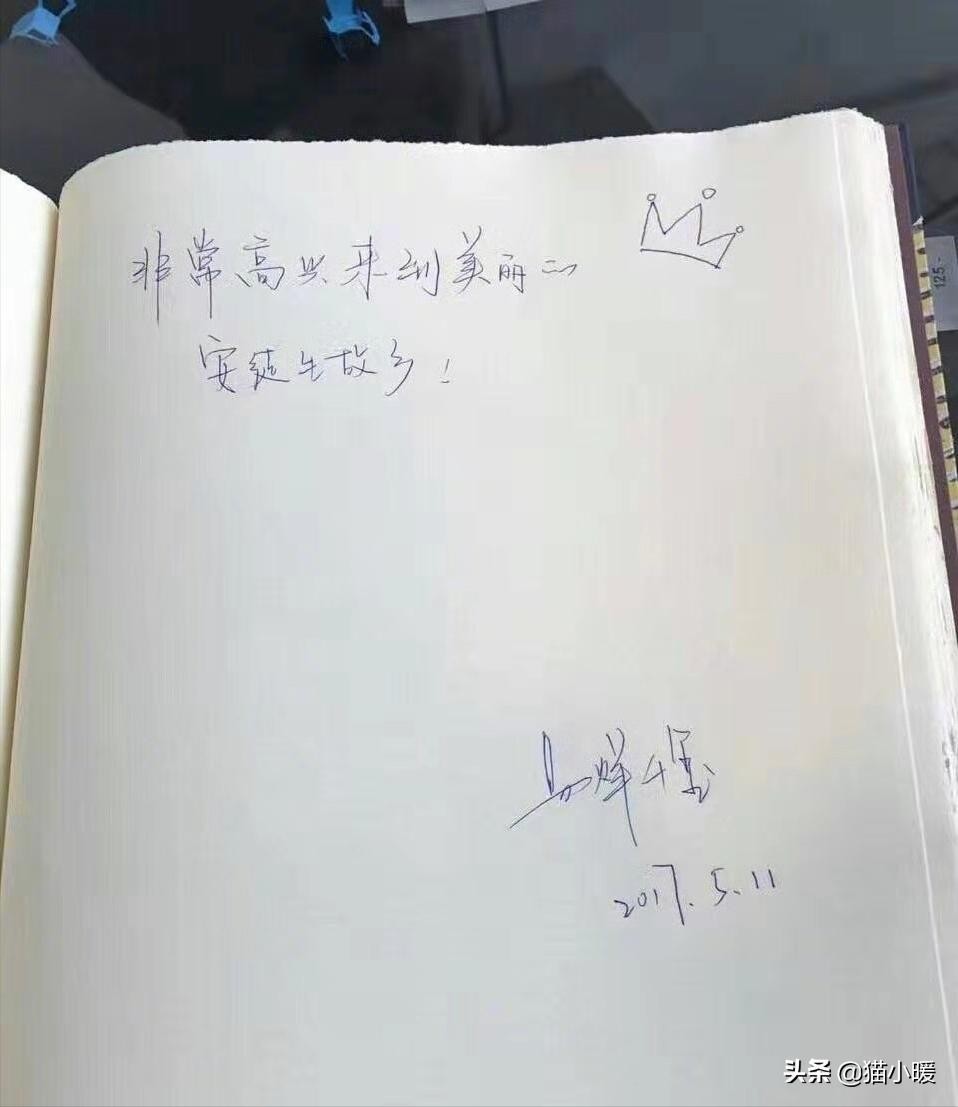 非常高兴来到美丽的
安徒生故乡！
易烊千玺
2017.5.11
125-
头条 @猫小暖